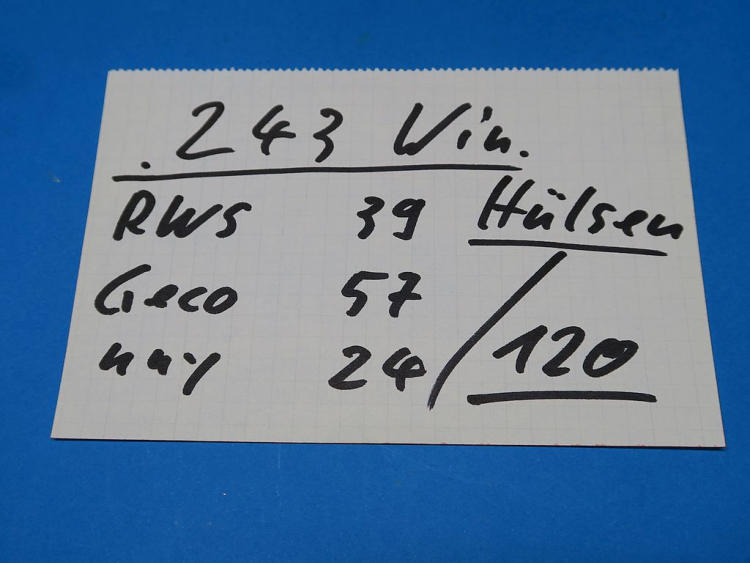 .243 Win.
RWS 39 Hülsen
Geco 57
24 / 120